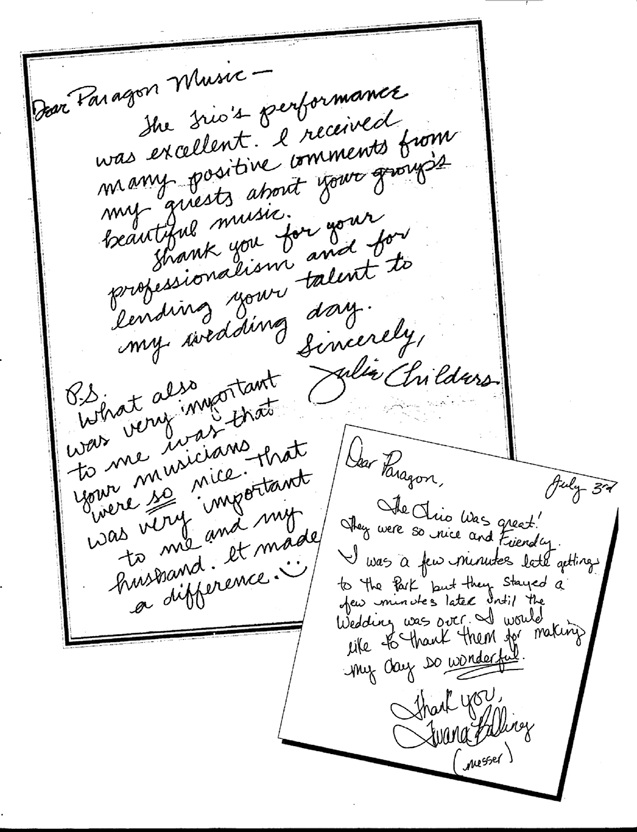 Dear Paragon Music —
The Trio's performance
was excellent. I received
many positive comments from
my guests about your group's
beautiful music.
Thank you for your
professionalism and for
lending your talent to
my wedding day.
Sincerely,
Julie Childers
P.S.
What also
was very important
to me was that
your musicians
were so nice. That
was very important
to me and my
husband. It made
a difference. ☺
July 3rd
Dear Paragon,
The Trio was great!
They were so nice and friendly.
I was a few minutes late getting
to the Park but they stayed a
few minutes later until the
Wedding was over. I would
like to thank them for making
my day so wonderful.
Thank you,
Twana
(messer)